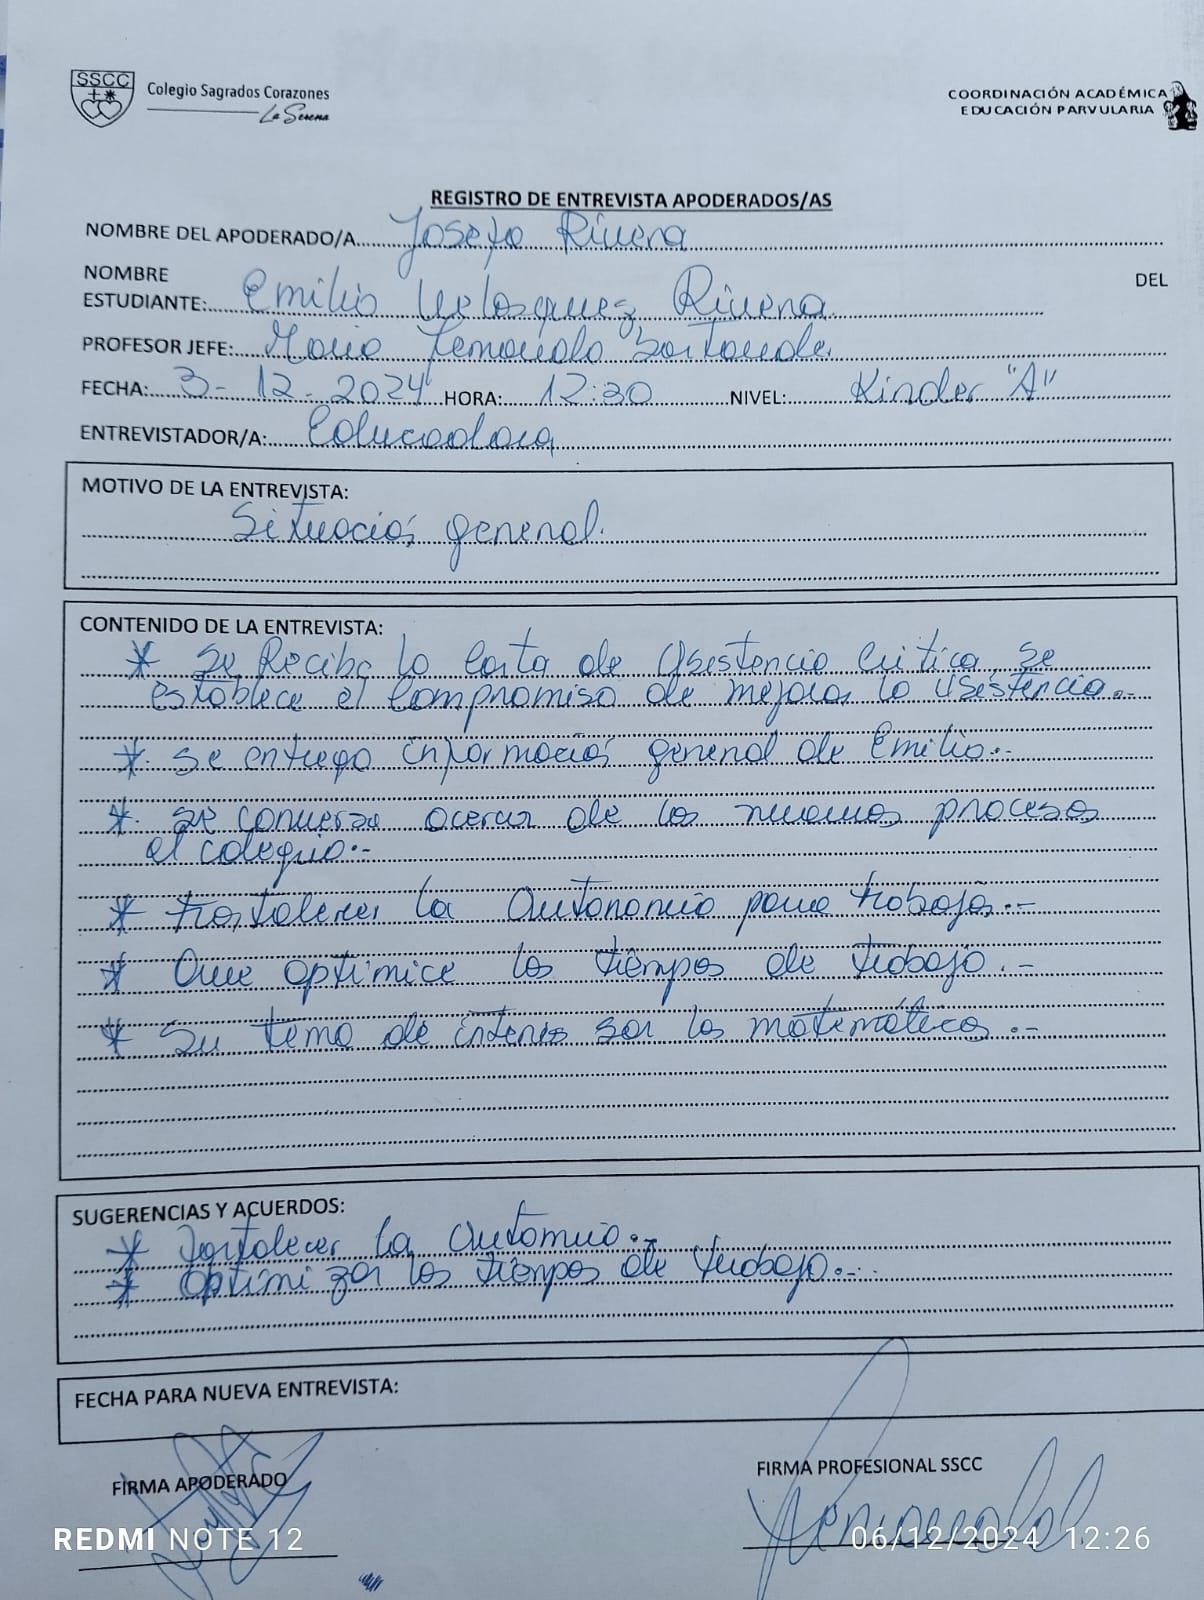 SSCC
Colegio Sagrados Corazones
La Serena
COORDINACIÓN ACADÉMICA
EDUCACIÓN PARVULARIA
REGISTRO DE ENTREVISTA APODERADOS/AS
NOMBRE DEL APODERADO/A Josefa Rivera
NOMBRE DEL
ESTUDIANTE: Emilio Velasquez Rivera
PROFESOR JEFE: Maria
FECHA: 3-12-2024 HORA: 12:30 NIVEL: Kinder "A"
ENTREVISTADOR/A: Educadora
MOTIVO DE LA ENTREVISTA:
Situación general.
CONTENIDO DE LA ENTREVISTA:
* Se Recibe la Carta de Asistencia Critica, se
establece el Compromiso de mejorar la Asistencia.-
*. Se entrega información general de Emilio.-
*. se conversa acerca de los nuevos procesos
el colegio.-
* Fortalecer la Autonomía para trabajar.-
* Que optimice los tiempos de trabajo.-
* Su tema de interes son la matemática.-
SUGERENCIAS Y ACUERDOS:
* Fortalecer la Automia.-
* Optimizar los tiempos de trabajo.-
FECHA PARA NUEVA ENTREVISTA:
FIRMA APODERADO
FIRMA PROFESIONAL SSCC
REDMI NOTE 12
06/12/2024 12:26